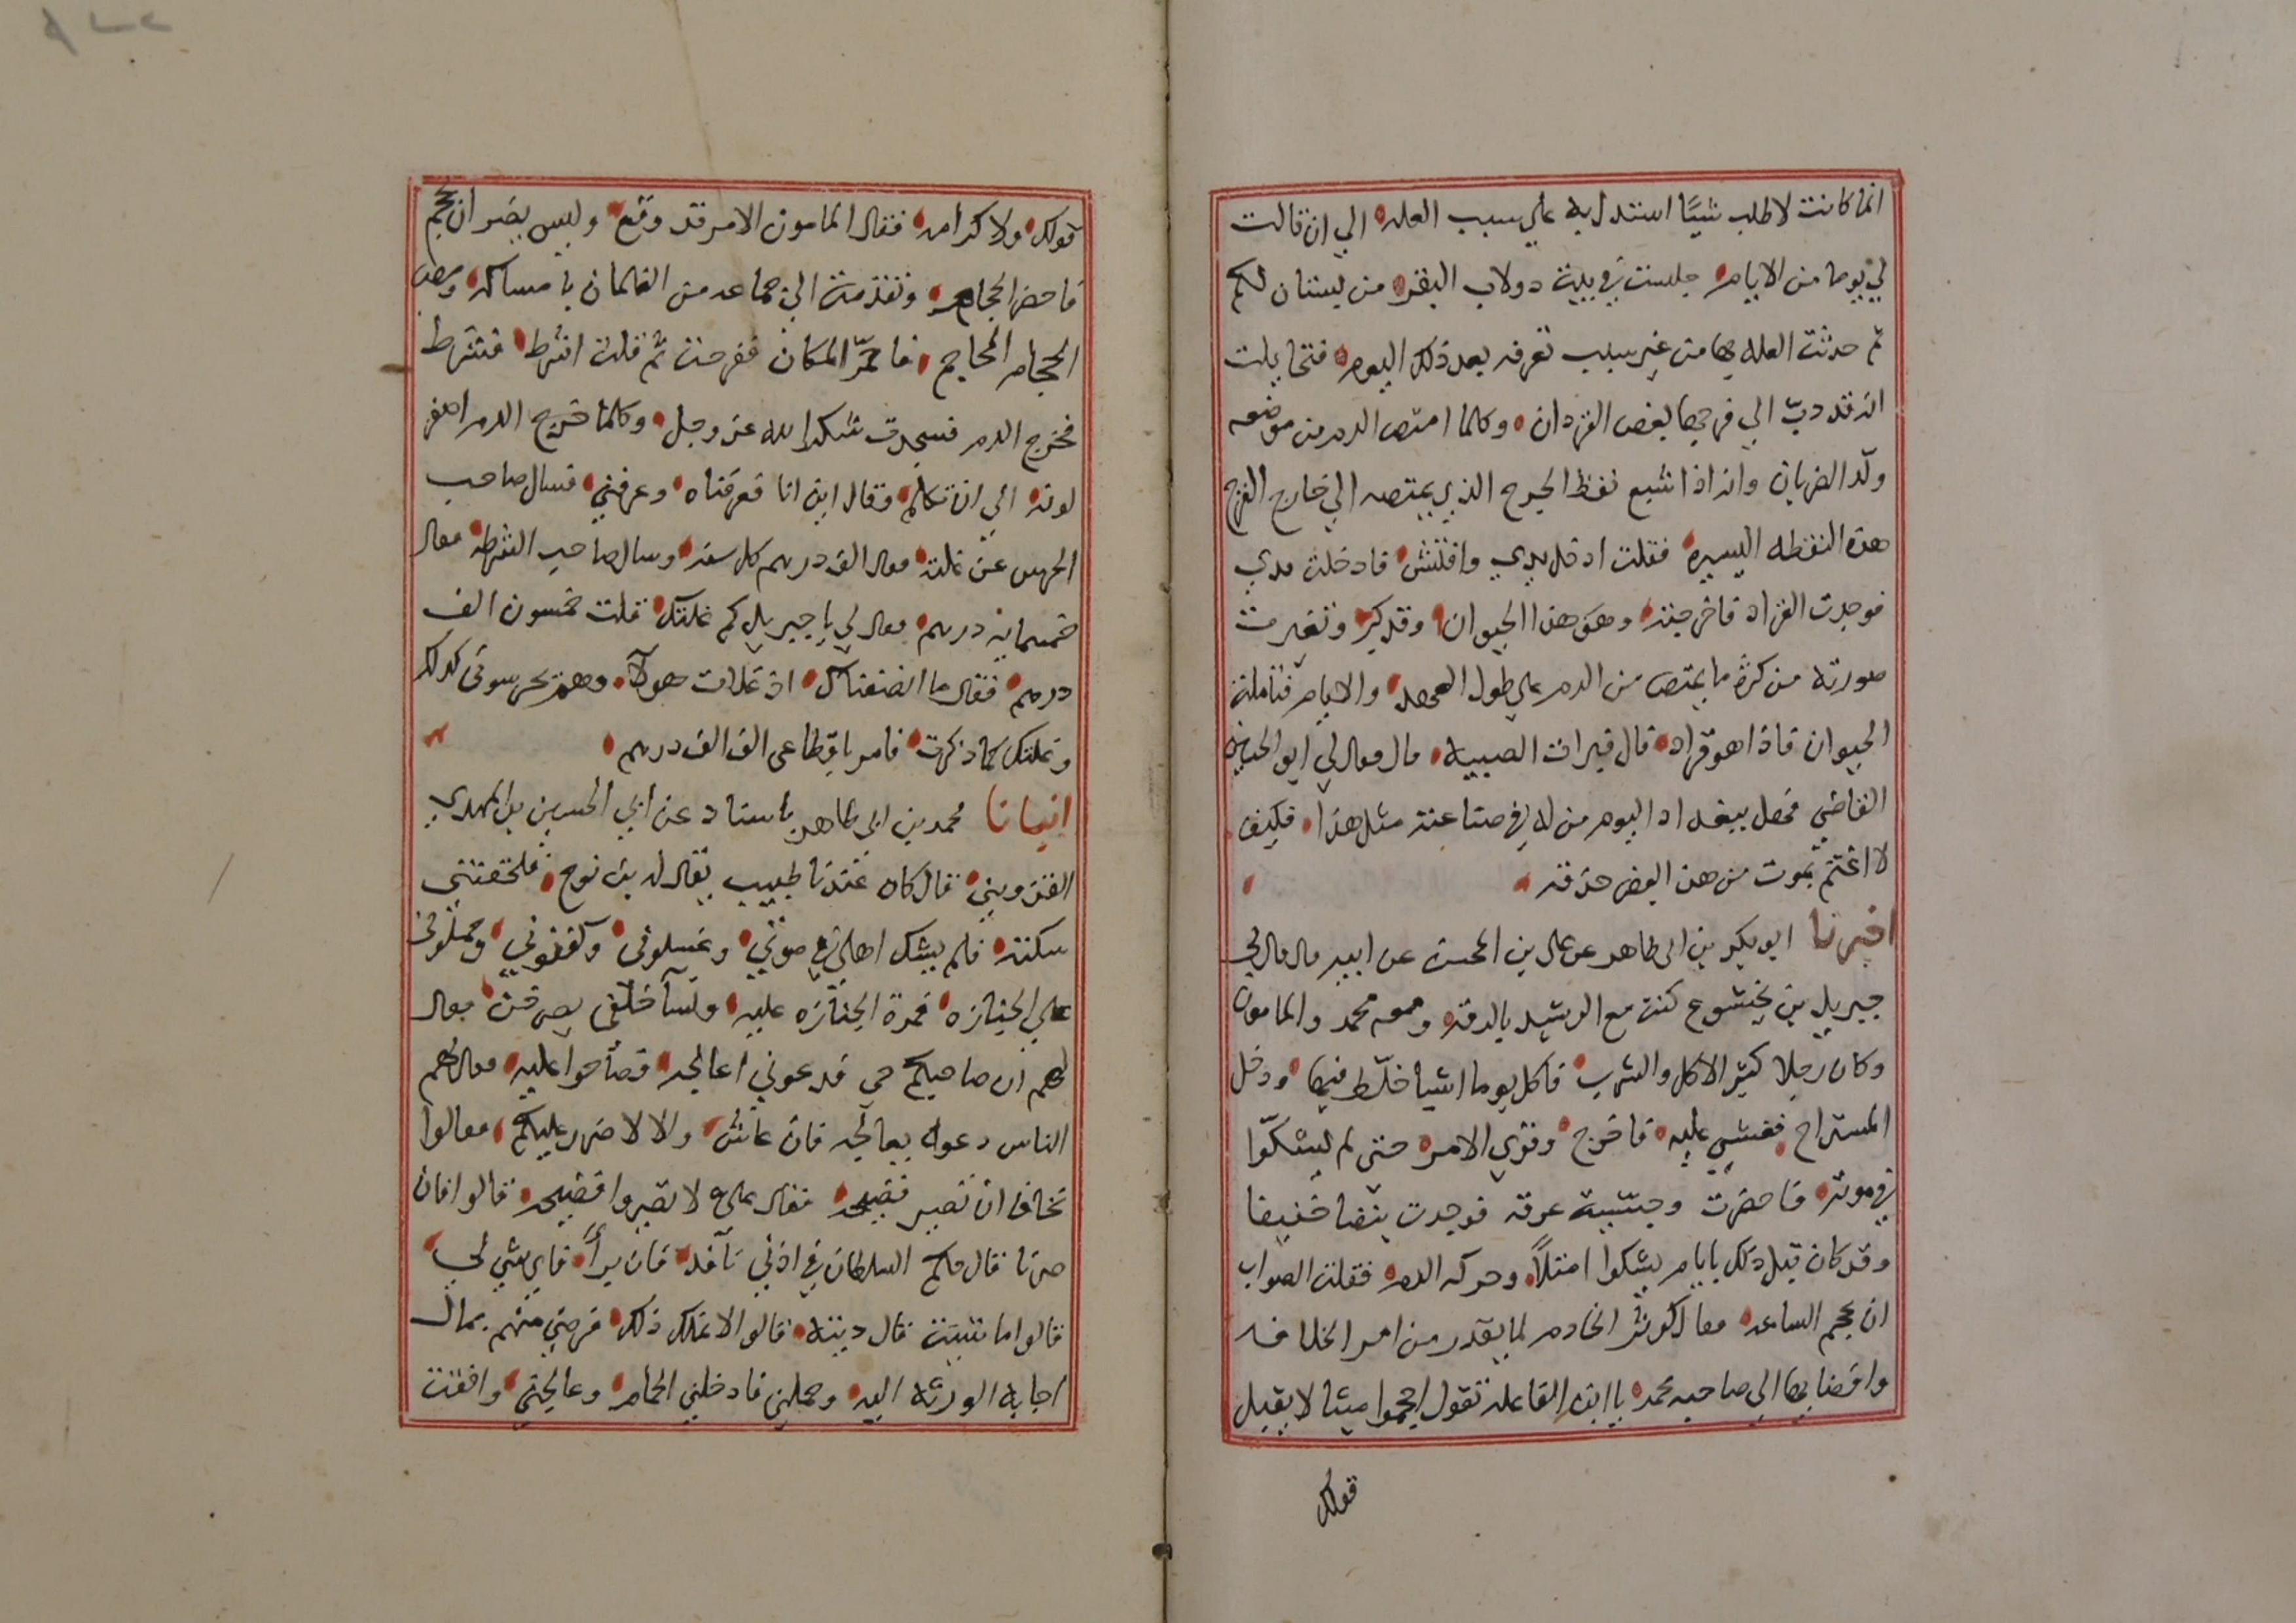 انما كانت لاطلب شيئًا استدل به علي سبب العله الي ان قالت
لي يوما من الايام جلست في بيت دولاب البقر من بستان لكم
ثم حدثت العله بها من غير سبب تعرفه بعد ذلك اليوم فتخايلت
انه قد دبّ الي فرجها بعض القردان وكلما امتص الدم من موضعه
ولّد الضربان وانه اذا شبع نفظ الجرح الذي يمتصه الي خارج الفرج
هذه النقطه اليسيره فقلت ادخل يدي وافتش فادخلت يدي
فوجدت القراد فاخرجته وهو هذا الحيوان وقد كبر وتغيرت
صورته من كثرة ما يمتص من الدم علي طول والايام فتاملت
الحيوان فاذا هو قراد قال فبرات الصبيه قال فقال لي ابو الحسين
القاضي فحصل ببغداد اليوم من له في صناعته مثل هذا فكيف
لا اغتم بموت من هذا بعض حذقه
اخبرنا ابو بكر بن ابي طاهر عن علي بن المحسن عن ابيه قال قال لي
جبريل بن بخيشوع كنت مع الرشيد بالرقه ومعه محمد والمامون
وكان رجلا كثير الاكل والشرب فاكل يوما اشيا خلّط فيها ودخل
المستراح فغشي عليه فاخرج وقوي الامر حتي لم يشكّوا
في موته فاحضرت وجسست عرقه فوجدت نبضا خفيفا
وقد كان قبل ذلك بايام يشكوا امتلأً وحركه الدم فقلت الصواب
ان يحجم الساعه فقال كوثر الخادم لما يقدر من امر الخلافه
وافضايها الي صاحبه محمد يا ابن الفاعله تقول احجموا ميتا لا يقبل
قولك
قولك ولا كرامه فقال المامون الامر قد وقع وليس يضر ان يحجم
فاحضر الحجام وتقدمت الي جماعه من الغلمان بامساكه ومص
الحجام المحاجم فاحمرّ المكان ففرحت ثم قلت اشرط فشرط
فخرج الدم فسجدت شكرا لله عز وجل وكلما خرج الدم اصفر
لونه الي ان تكلم وقال اين انا فعرفناه وعرفني فسال صاحب
الحرس عن غلته فقال الف درهم كل سنه وسال صاحب الشرطه فقال
خمسمايه درهم فقال لي يا جبريل كم غلتك قلت خمسون الف
درهم فقال ما انصفناك اذ غلات هولآ وهم يحرسوني كذلك
وغلتك كما ذكرت فامر باقطاعي الف الف درهم
انبانا محمد بن ابي طاهر باسناد عن ابي الحسين بن المهدي
القزويني قال كان عندنا طبيب يقال له بن نوح فلحقتني
سكته فلم يشك اهلي في موتي وغسلوني وكفنوني وحملوني
علي الجنازه فمرة الجنازه عليه ونسآ خلفي يصرخن فقال
لهم ان صاحبكم حي فدعوني اعالجه فصاحوا عليه فقال لهم
الناس دعوه يعالجه فان عاش والا لا ضرر عليكم فقالوا
نخاف ان تصير فضيحه فقال علي لا تصيروا فضيحه قالوا فان
صرنا قال حكم السلطان في اذني نافذ فان برأ فاي شي لي
قالوا ما شيت قال ديته قالوا لا نملك ذلك فرضي منهم بمال
اجابه الورثه اليه وحملني فادخلني الحمام وعالجني وافقت